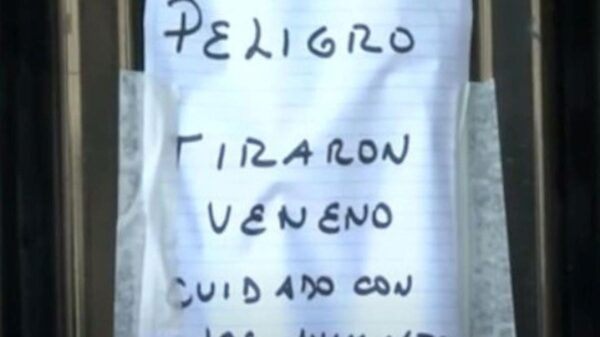 PELIGRO
TIRARON
VENENO
CUIDADO CON